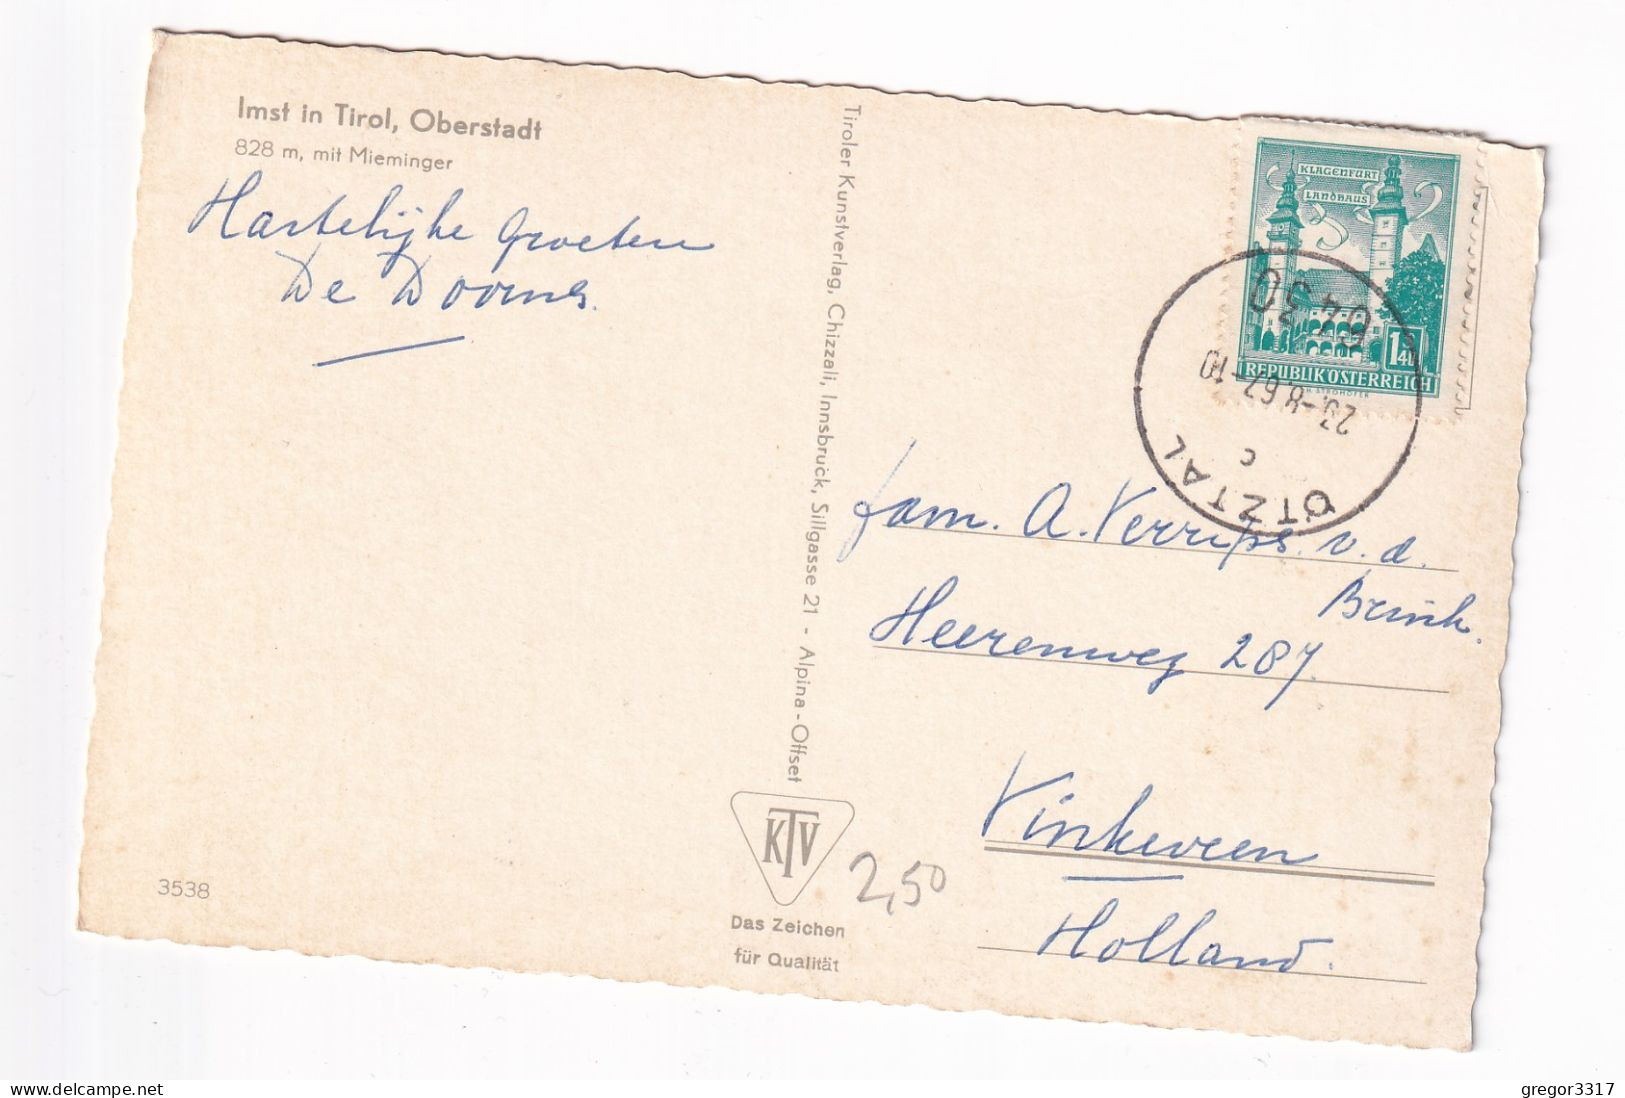 Imst in Tirol, Oberstadt
828 m, mit Mieminger
Hartelijke Groeten
De Doorns.
3538
Tiroler Kunstverlag, Chizzali, Innsbruck, Sillgasse 21 - Alpina-Offset
KTV
Das Zeichen
für Qualität
2,50
KLAGENFURT
LANDHAUS
1 S 40
REPUBLIK ÖSTERREICH
6430
29.-8.67-10
c
ÖTZTAL
Fam. A. Verrips. v. d.
Brink.
Heerenweg 287.
Vinkeveen
Holland.
gregor3317